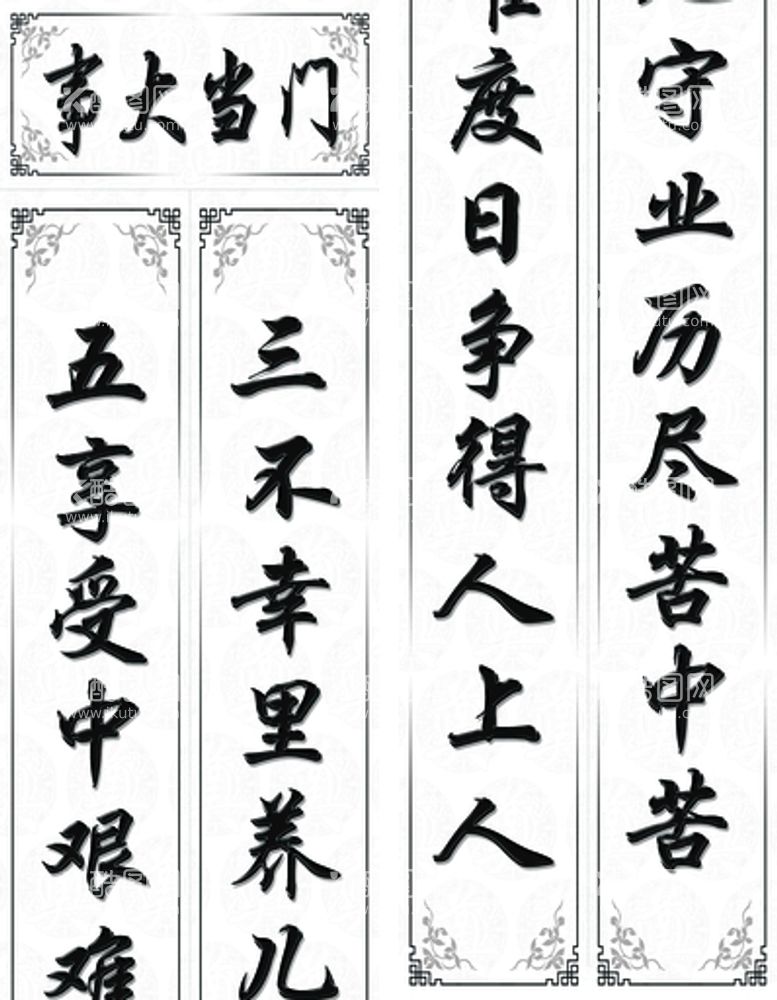 门当大事
三不幸里养儿
五享受中艰难
守业历尽苦中苦
度日争得人上人